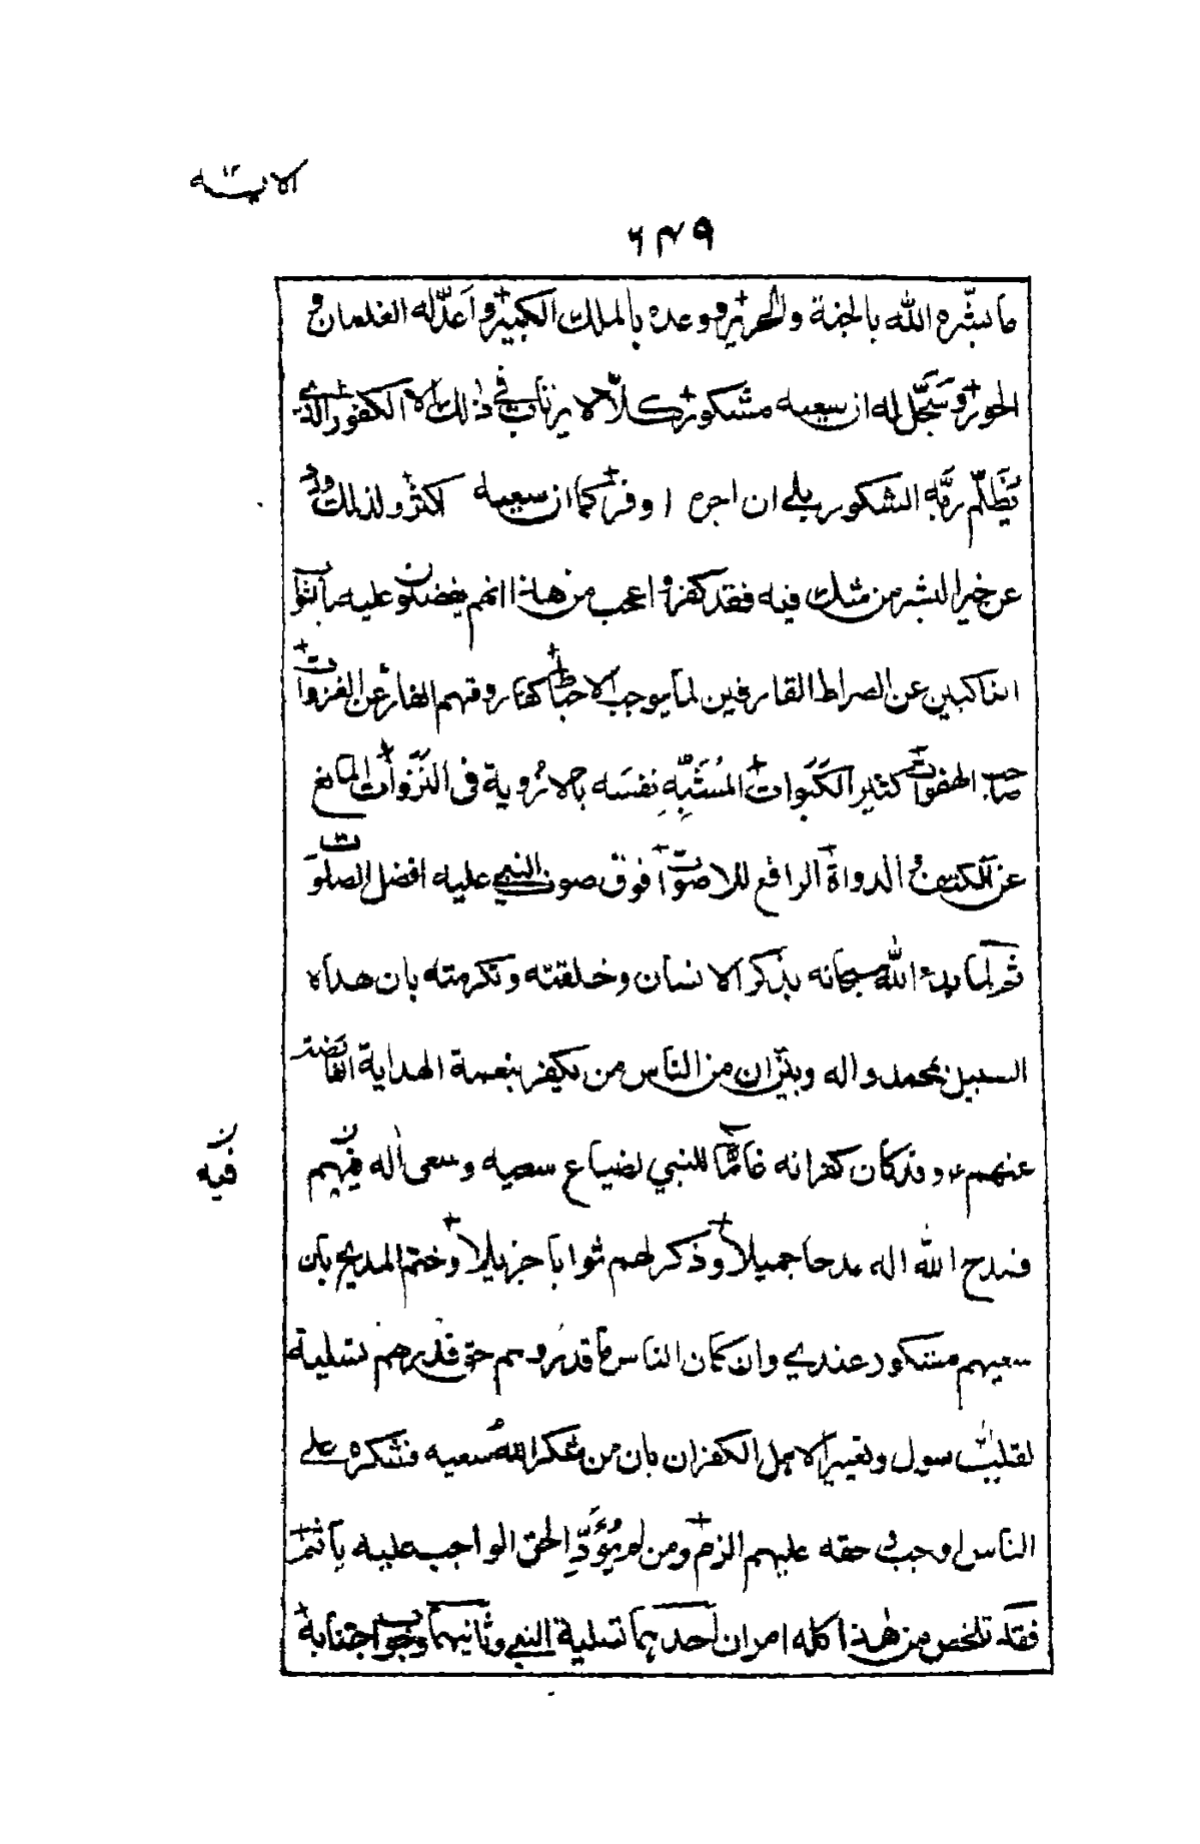 الایة ۱۲
۶۴۹
ما بشّره اللّٰه بالجنة والحریر ووعده بالملك الكبیر واَعدّ له الغلمان و
الحور وسَجَّل له ان سعیه مشكور كلّا لا یرتاب فی ذلك الا الكفور الذی
یَظّلم ربَّه الشكور بلی ان اجره اوفر كما ان سعیه اكثر ولذلك ورد
عن خیر البشر من شك فیه فقد كفر واعجب من هذا انهم یفضلون علیه
الناكبین عن الصراط القارفین لما یوجب الاحباط كفاروقهم الفار عن الغزوات
صاحب الهفوات كثیر الكَبَوات المُشَبِّهِ نفسَه فی النَزَوات المانع
عن الكتف والدواة الرافع للاصوات فوق صوت النبی علیه افضل الصلوات
ثم لما بدء اللّٰه سبحانه بذكر الانسان وخلقته وتكرمته بان هداه
السبیل بمحمد واله وبیّن ان من الناس من یكفر بنعمة الهدایة الفائضة
عنهم وقد كان كفرانه غامّا للنبی لضیاع سعیه وسعی اٰله فیهم
فیه ن
فمدح اللّٰه اله مدحا جمیلا وذكر لهم ثوابا جزیلا وختم المدیح بان
سعیهم مشكور عندی وان كان الناس ما قدروهم حق قدرهم تسلیة
لقلب الرسول وتعییرا لاهل الكفران بان من شكر اللّٰه سعیه فشكره علی
الناس اوجب و حقه علیهم الزم ومن لم یُؤَدِّ الحق الواجب علیه یأثم
فقد تلخص من هٰذا كله امران احدهما تسلیة النبی وثانیهما وجوب اجتنابه